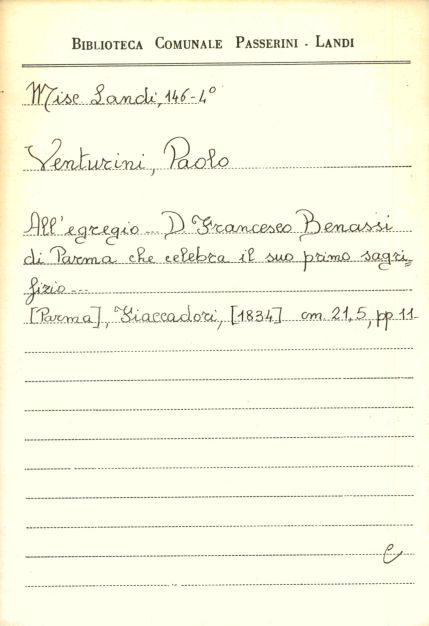 BIBLIOTECA COMUNALE PASSERINI - LANDI
Misc Landi, 146-4°
Venturini, Paolo
All'egregio... D. Francesco Benassi
di Parma che celebra il suo primo sagri=
fizio...
[Parma], Fiaccadori, [1834] cm. 21,5, pp 11